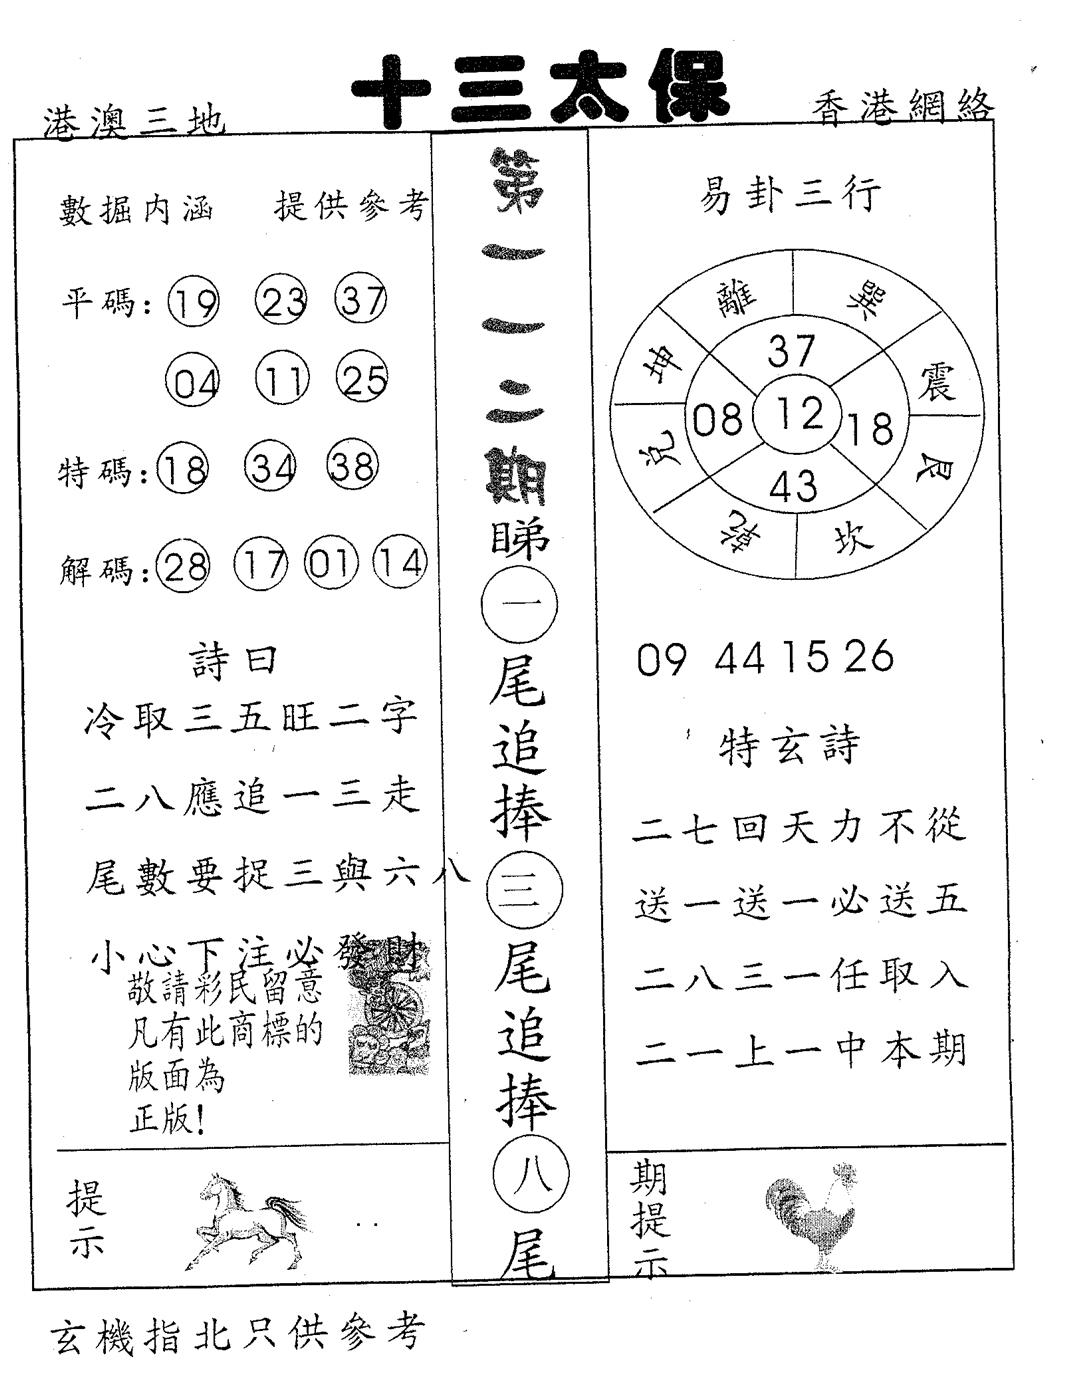 十三太保
港澳三地
香港網絡
數掘内涵 提供參考
平碼: 19 23 37
04 11 25
特碼: 18 34 38
解碼: 28 17 01 14
詩曰
冷取三五旺二字
二八應追一三走
尾數要捉三與六八
小心下注必發財
敬請彩民留意
凡有此商標的
版面為
正版!
提示
第一一二期
睇一尾追捧三尾追捧八尾
易卦三行
離 巽
坤 震
兌 艮
乾 坎
37
08 12 18
43
09 44 15 26
特玄詩
二七回天力不從
送一送一必送五
二八三一任取入
二一上一中本期
期提示
玄機指北只供參考